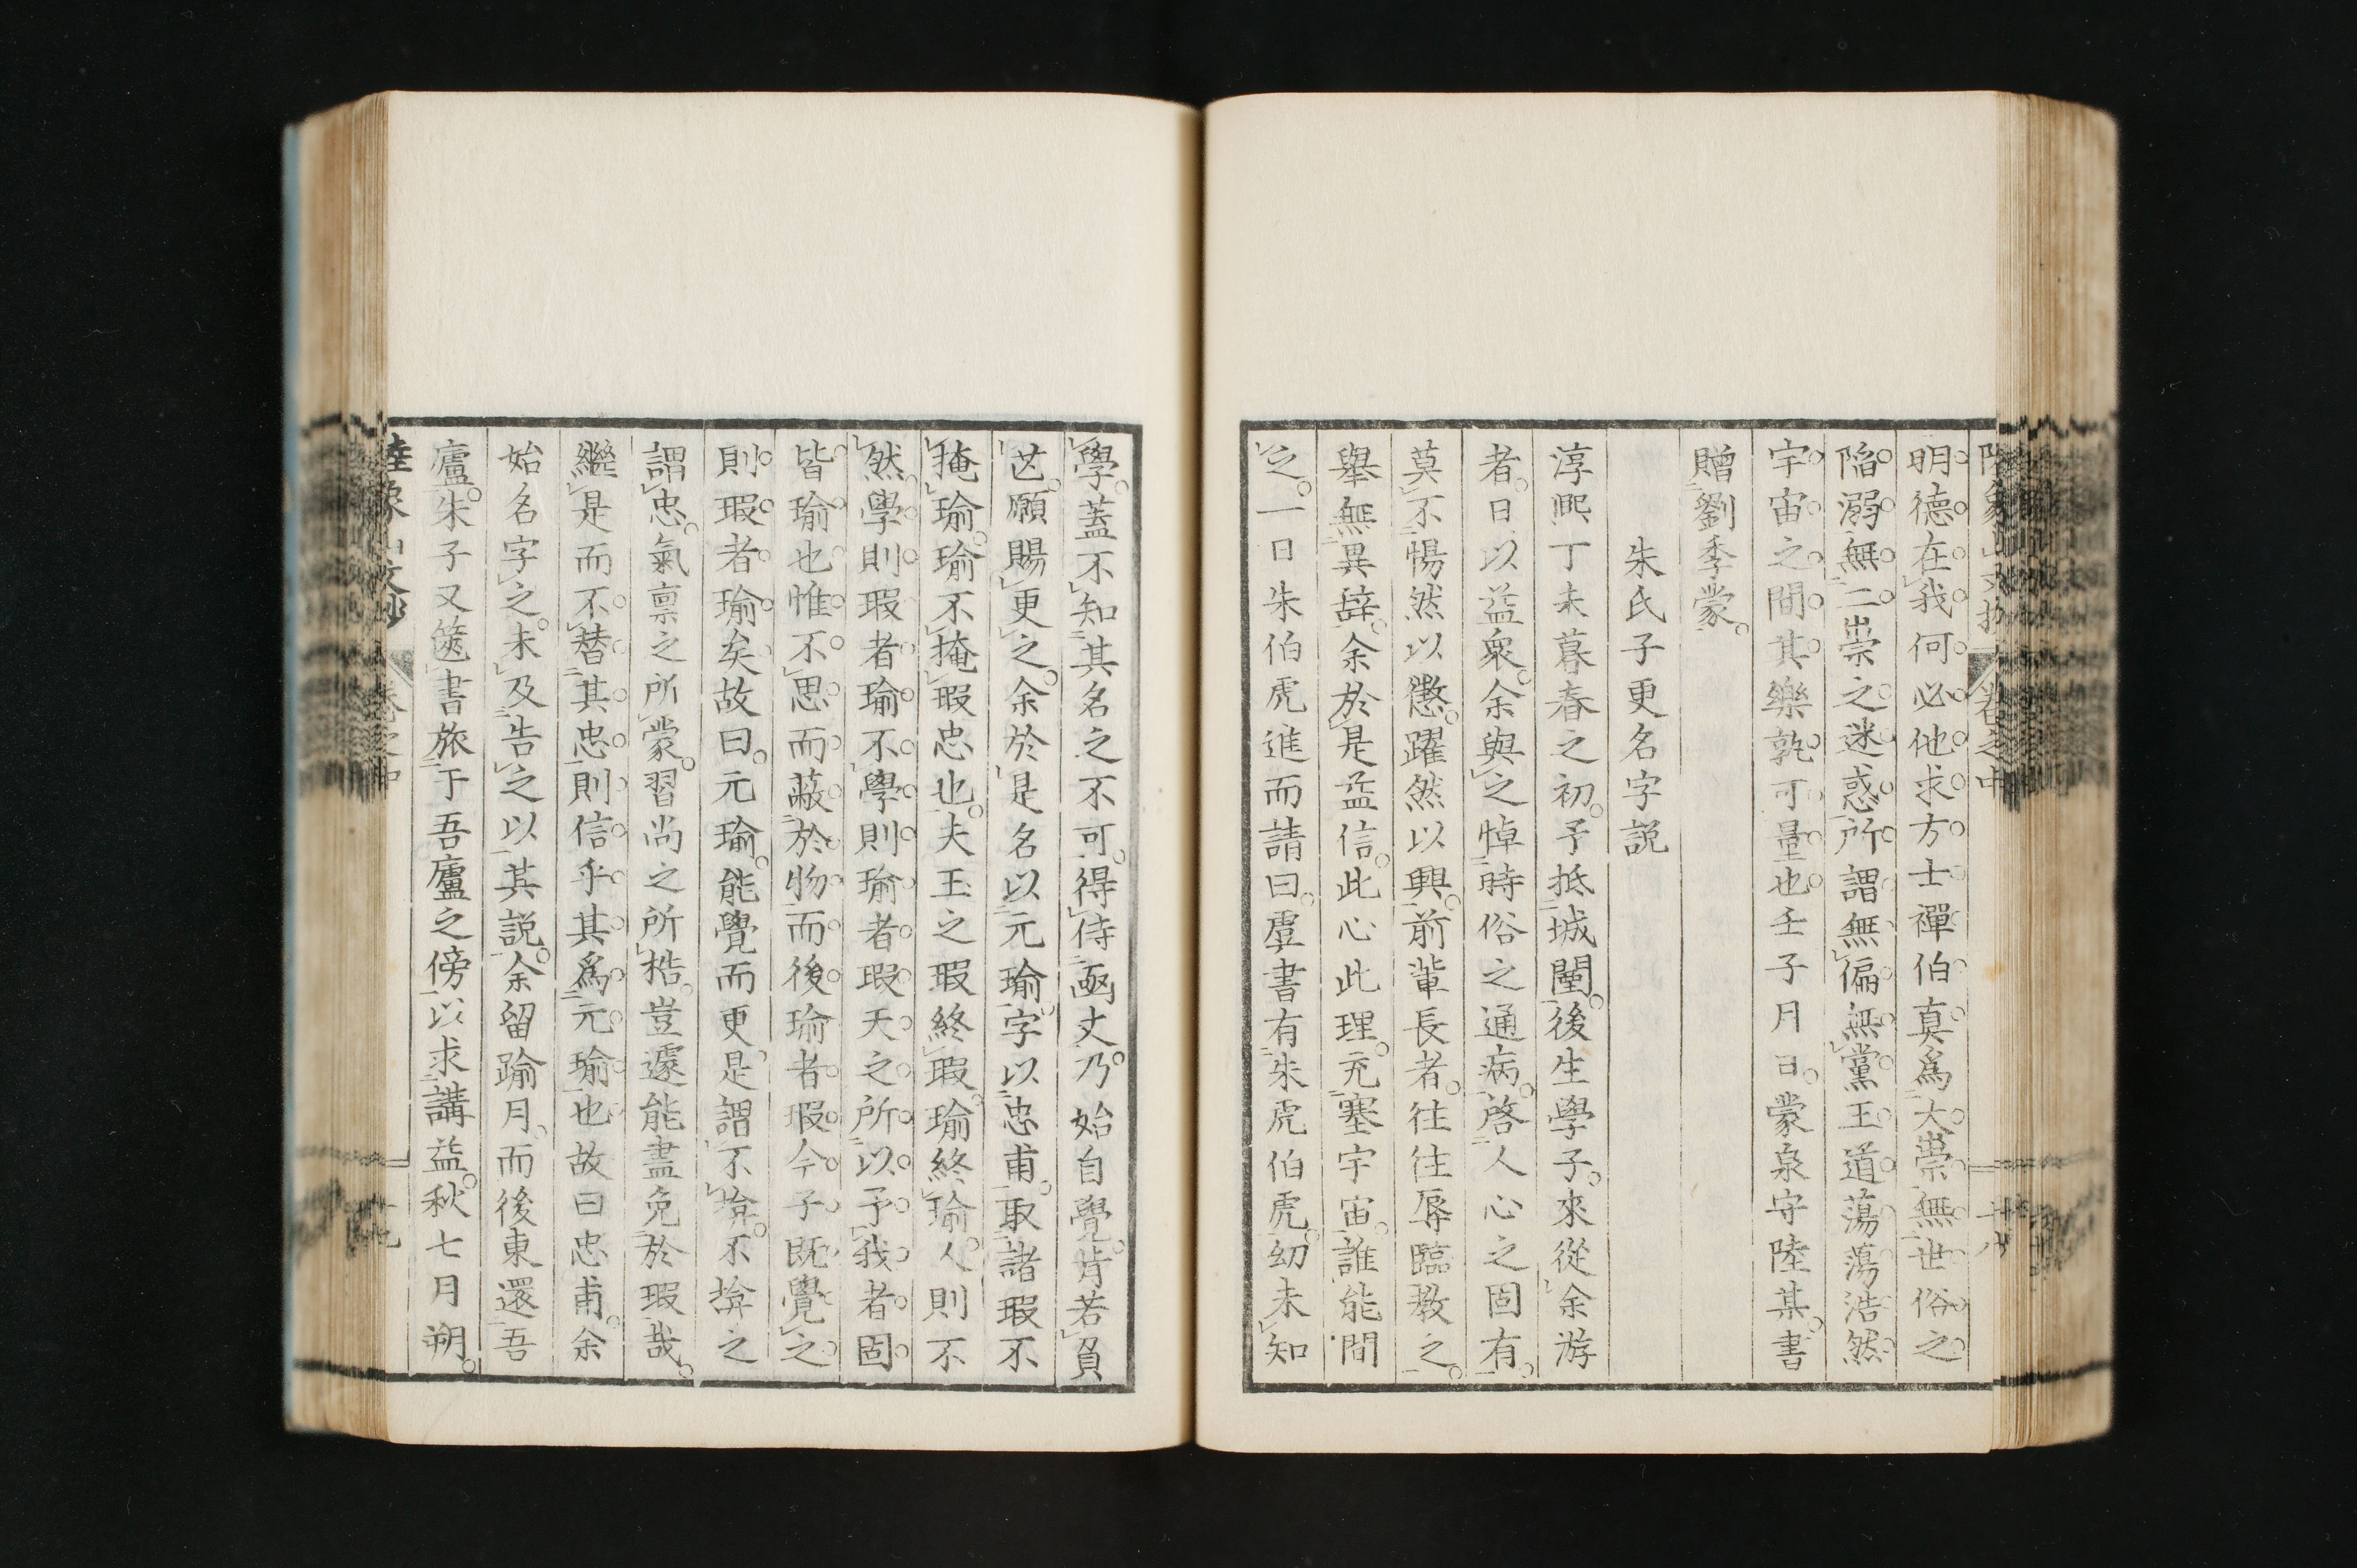 明德在我何必他求方士禪伯真爲大崇無世俗之
陷溺無二崇之迷惑所謂無偏無黨王道蕩蕩浩然
宇宙之間其樂孰可量也壬子月日蒙泉守陸某書
贈劉季蒙
朱氏子更名字説
淳熙丁未暮春之初予抵城闉後生學子來從余游
者日以益衆余與之悼時俗之通病啓人心之固有
莫不惕然以懲躍然以興前輩長者往往辱臨教之
舉無異辭余於是益信此心此理充塞宇宙誰能間
之一日朱伯虎進而請曰虞書有朱虎伯虎幼未知
學蓋不知其名之不可得侍函丈乃始自覺背若負
芒願賜更之余於是名以元瑜字以忠甫取諸瑕不
掩瑜瑜不掩瑕忠也夫玉之瑕終瑕瑜終瑜人則不
然學則瑕者瑜不學則瑜者瑕天之所以予我者固
皆瑜也惟不思而蔽於物而後瑜者瑕今子既覺之
則瑕者瑜矣故曰元瑜能覺而更是謂不揜不揜之
謂忠氣禀之所蒙習尚之所梏豈遽能盡免於瑕哉
繼是而不替其忠則信乎其爲元瑜也故曰忠甫余
始名字之未及告之以其説余留踰月而後東還吾
廬朱子又篋書旅于吾廬之傍以求講益秋七月朔
陸象山文鈔 卷之中